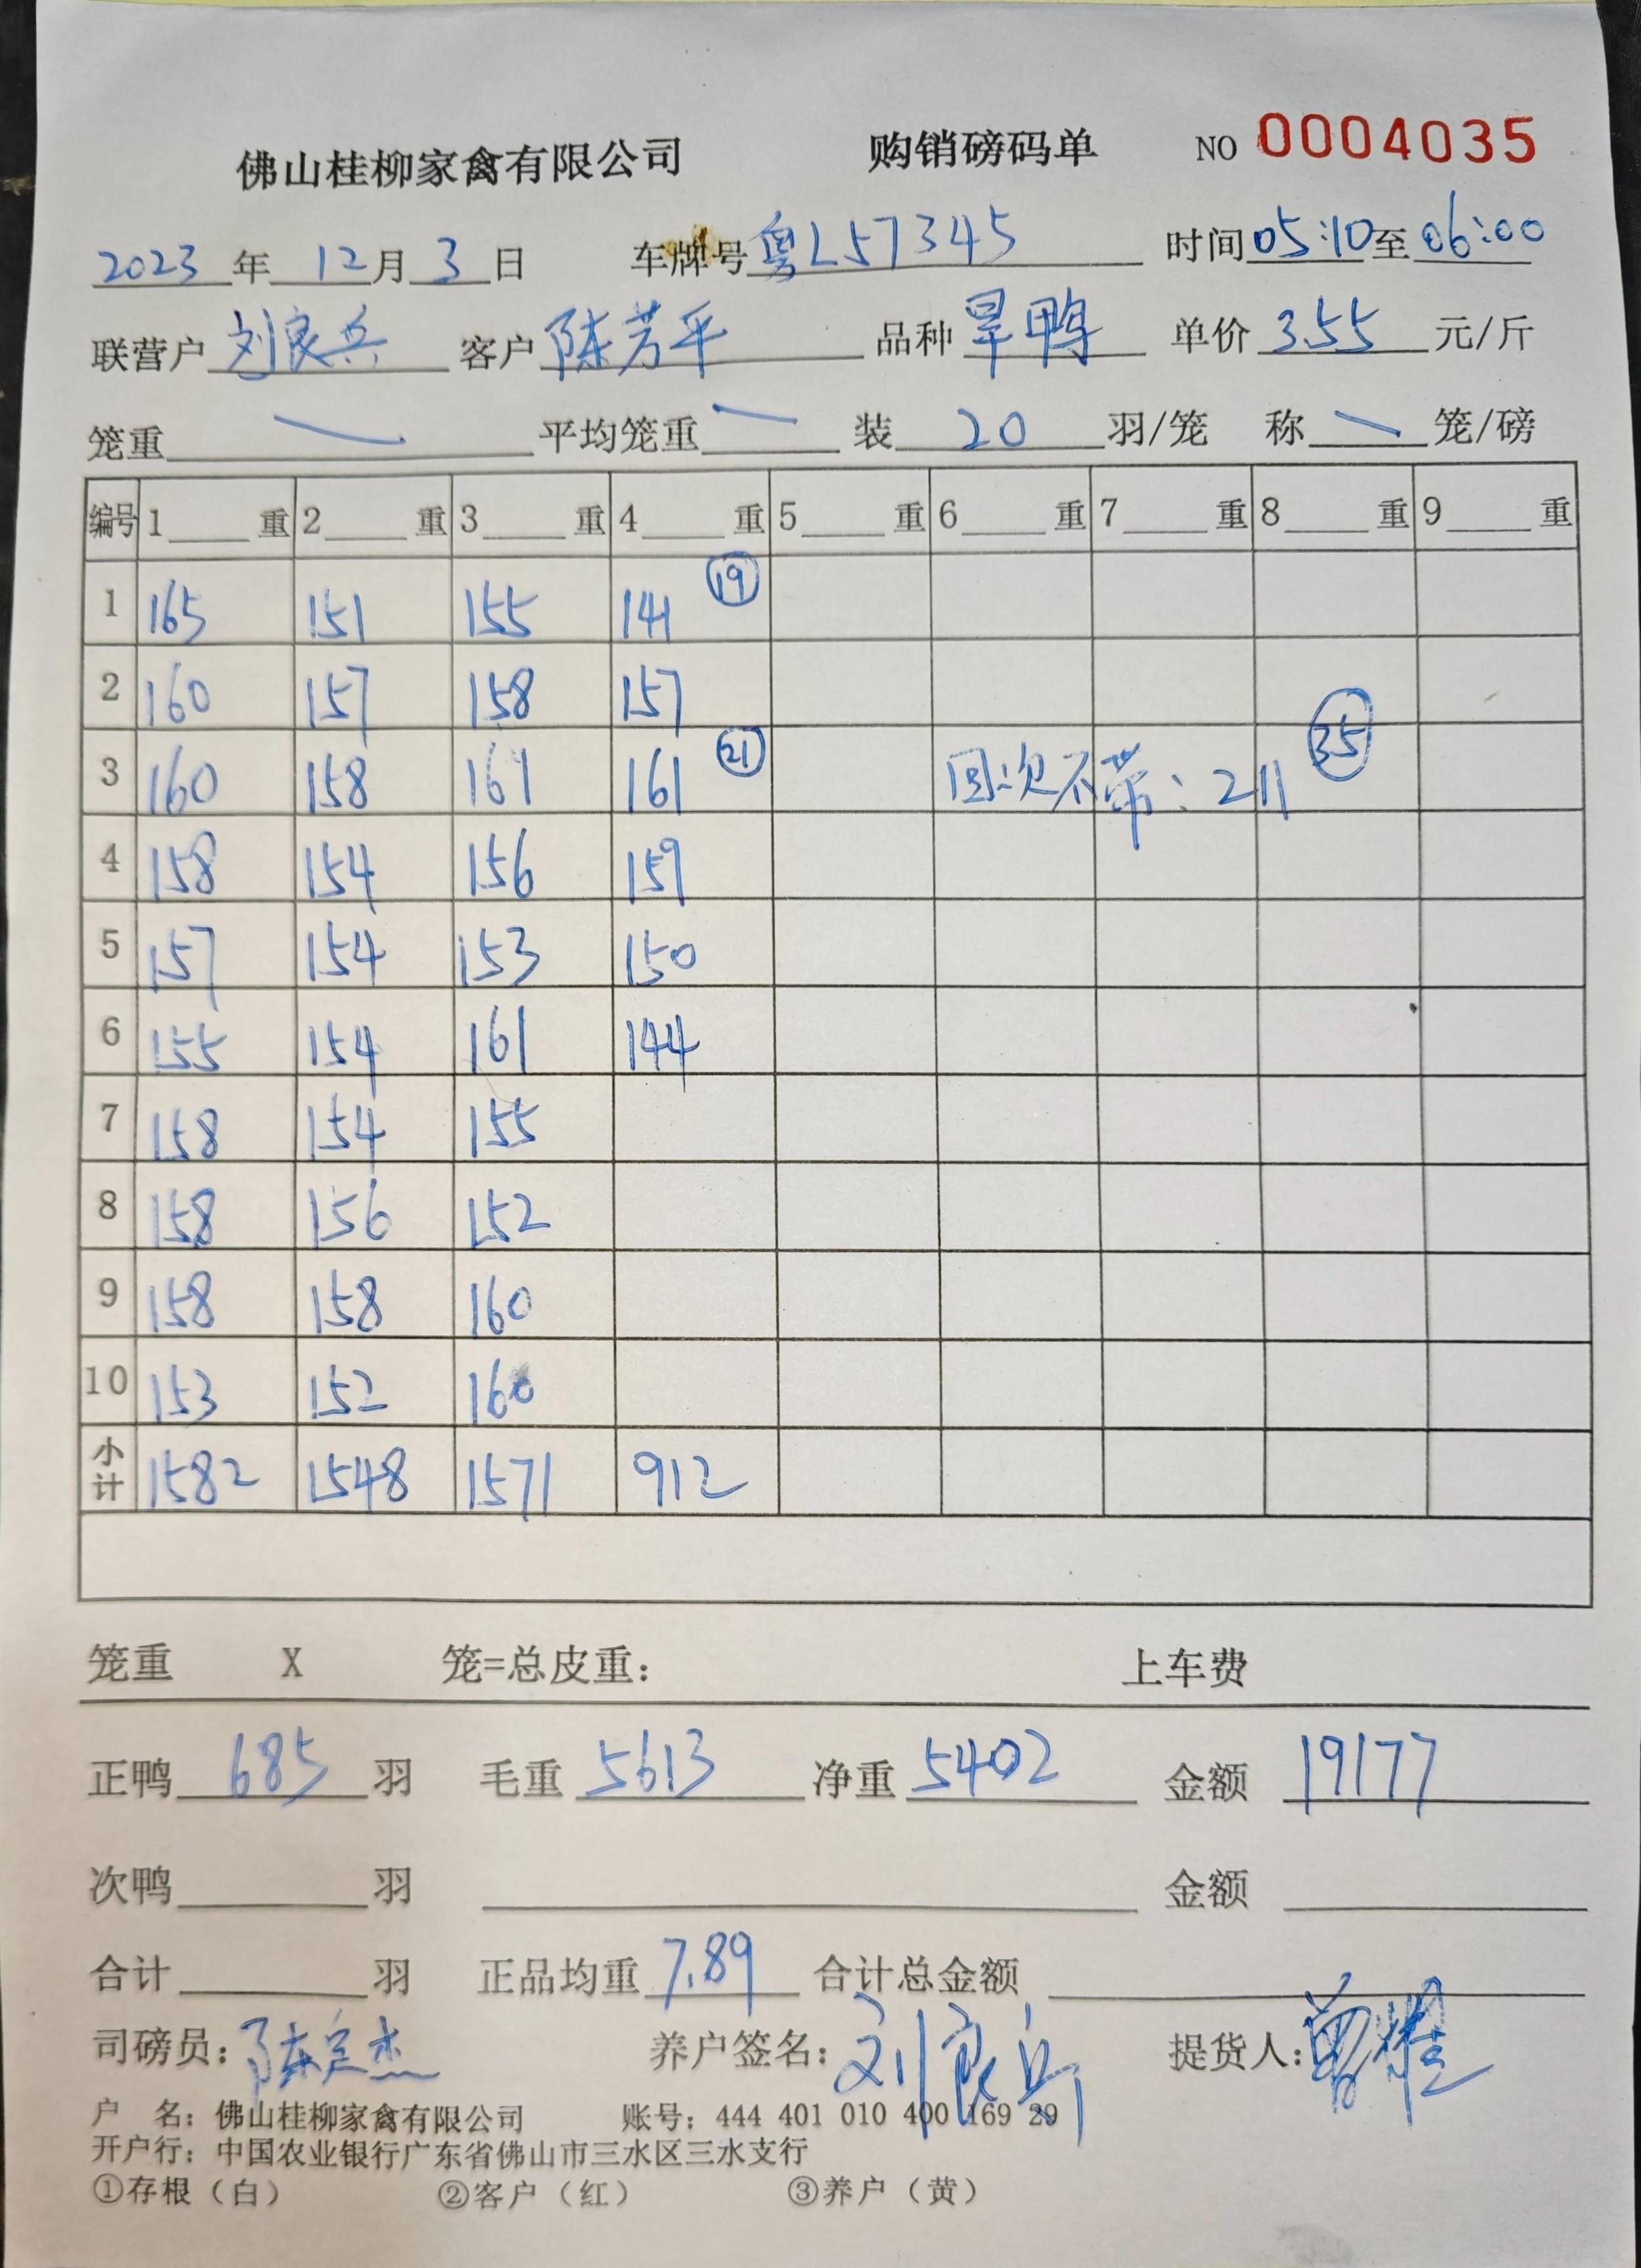 佛山桂柳家禽有限公司 购销磅码单 NO 0004035
2023年 12月 3日 车牌号 粤L57345 时间05:10至06:00
联营户 刘良兵 客户 陈芳平 品种 旱鸭 单价 3.55 元/斤
笼重 平均笼重 装 20 羽/笼 称 笼/磅
编号 1 重 2 重 3 重 4 重 5 重 6 重 7 重 8 重 9 重
1 165 151 155 141 ⑲
2 160 157 158 157
3 160 158 161 161 ㉑ 回次不带:211 ㉟
4 158 154 156 159
5 157 154 153 150
6 155 154 161 144
7 158 154 155
8 158 156 152
9 158 158 160
10 153 152 160
小计 1582 1548 1571 912
笼重 X 笼=总皮重: 上车费
正鸭 685 羽 毛重 5613 净重 5402 金额 19177
次鸭 羽 金额
合计 羽 正品均重 7.89 合计总金额
司磅员: 养户签名: 刘良兵 提货人:
户 名: 佛山桂柳家禽有限公司 账号: 444 401 010 400 169 29
开户行: 中国农业银行广东省佛山市三水区三水支行
①存根（白） ②客户（红） ③养户（黄）